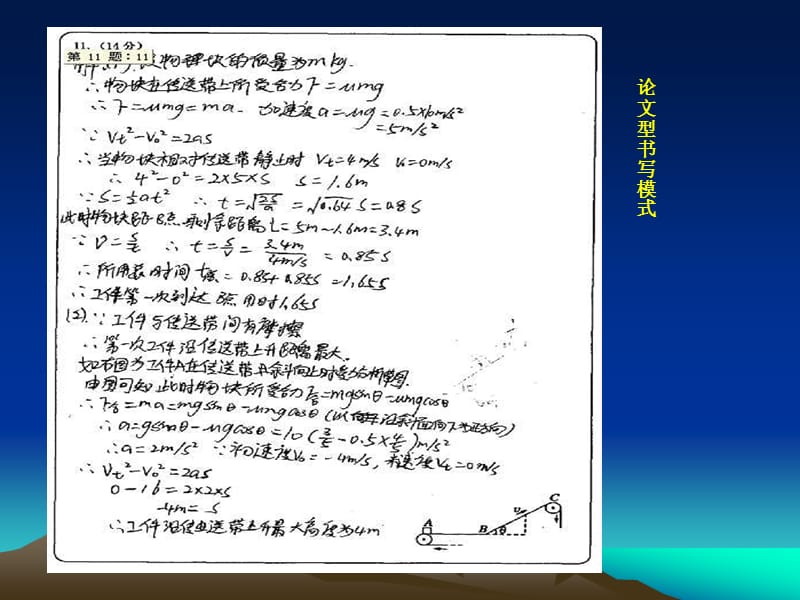 11.（14分）
第 11 题：11
解:(1)设物理块的质量为m kg.
∴物块在传送带上所受合力F=umg
∴F=umg=ma. 加速度a=ug=0.5×10m/s²
=5m/s²
∵ Vt²-V₀²=2as
∴当物块相对传送带静止时 Vt=4m/s V₀=0m/s
∴ 4²-0²=2×5×S S=1.6m
∵S=½at² ∴ t=√(2S/a) =√0.64 S=0.8S
此时物块距B点 剩余距离L=5m-1.6m=3.4m
∵ V=S/t ∴ t=S/V=3.4m/4m/s = 0.85S
∴所用总时间t总=0.8S+0.85S=1.65S
∴工件第一次到达B点用时1.65S
(2)∵工件与传送带间有摩擦
∴第一次工件沿传送带上升距离最大.
如右图为工件A在传送带上斜向上时受力分析草图.
由图可知 此时物块所受合力F合=mgsinθ-umgcosθ
∴F合=ma=mgsinθ-umgcosθ(以向下沿斜面向下为正方向)
∴a=gsinθ-ugcosθ=10(3/5-0.5×4/5)m/s²
∴a=2m/s² ∵初速度V₀=-4m/s, 末速度Vt=0m/s
∴ Vt²-V₀²=2as
0-16=2×2×S
-4m=S
∴工件沿传送带上升最大高度为4m
A B θ v C
论文型书写模式